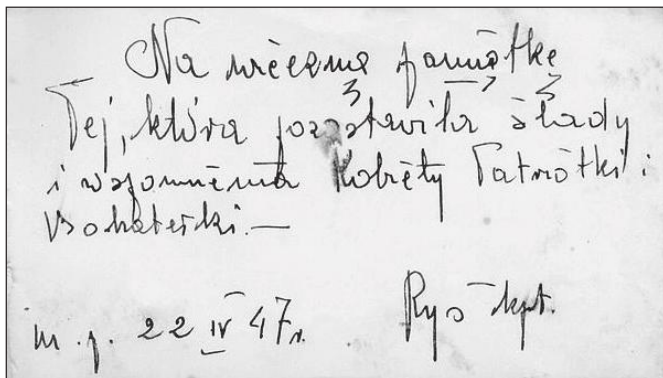 Na wieczną pamiątkę
Tej, która pozostawiła ślady
i wspomnienia Kobiety Patriotki i
Bohaterki. —
m. p. 22 IV 47 r. Ryś kpt.